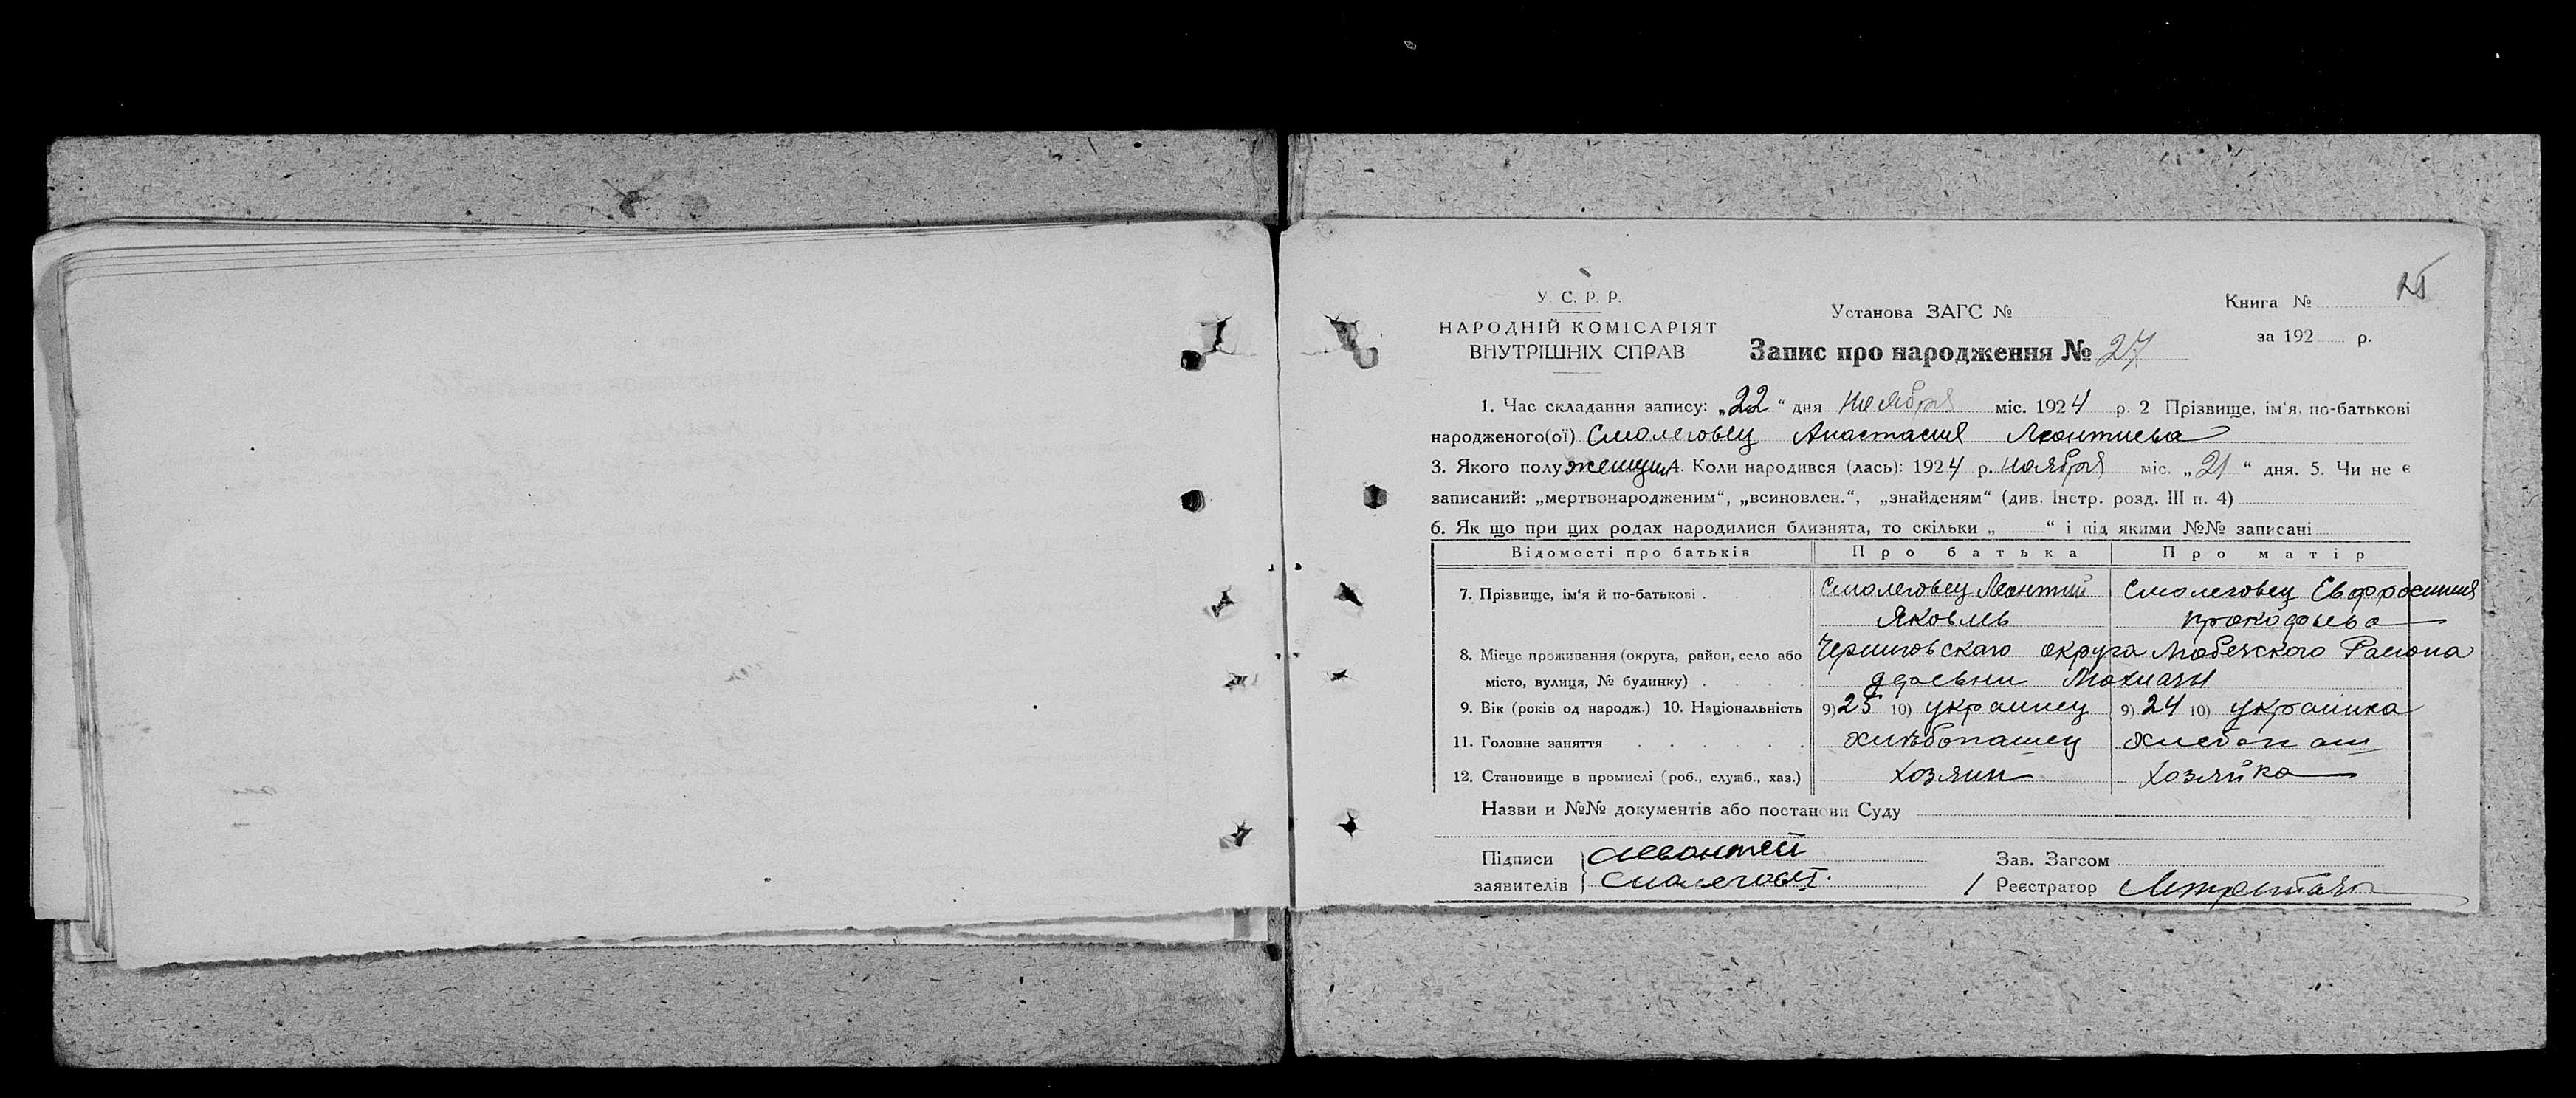 25
У. С. Р. Р.
НАРОДНІЙ КОМІСАРІЯТ
ВНУТРІШНІХ СПРАВ
Установа ЗАГС №
Запис про народження № 27
Книга №
за 192 р.
1. Час складання запису: „22“ дня ноября міс. 1924 р. 2 Прізвище, ім'я, по-батькові
народженого(ої) Смолеговец Анастасия Леонтиева
3. Якого полу женщин 4. Коли народився (лась): 1924 р. ноября міс. „21“ дня. 5. Чи не є
записаний: „мертвонародженим“, „всиновлен.“, „знайденям“ (див. Інстр. розд. III п. 4)
6. Як що при цих родах народилися близнята, то скільки „ “ і під якими №№ записані
Відомості про батьків Про батька Про матір
7. Прізвище, ім'я й по-батькові . . . . Смолеговец Леонтий Смолеговец Евфросиния
Яковль Прокофьева
8. Місце проживання (округа, район, село або Черниговскаго округа Любечского Раиона
місто, вулиця, № будинку) . . . . деревни
9. Вік (років од народж.) 10. Національність 9) 25 10) украинец 9) 24 10) украинка
11. Головне заняття . . . . . . хлѣбопашец хлебопаш
12. Становище в промислі (роб., служб., хаз.) хозяин хозяйка
Назви и №№ документів або постанови Суду
Підписи Левонтей Зав. Загсом
заявителів Смолеговец. Реєстратор